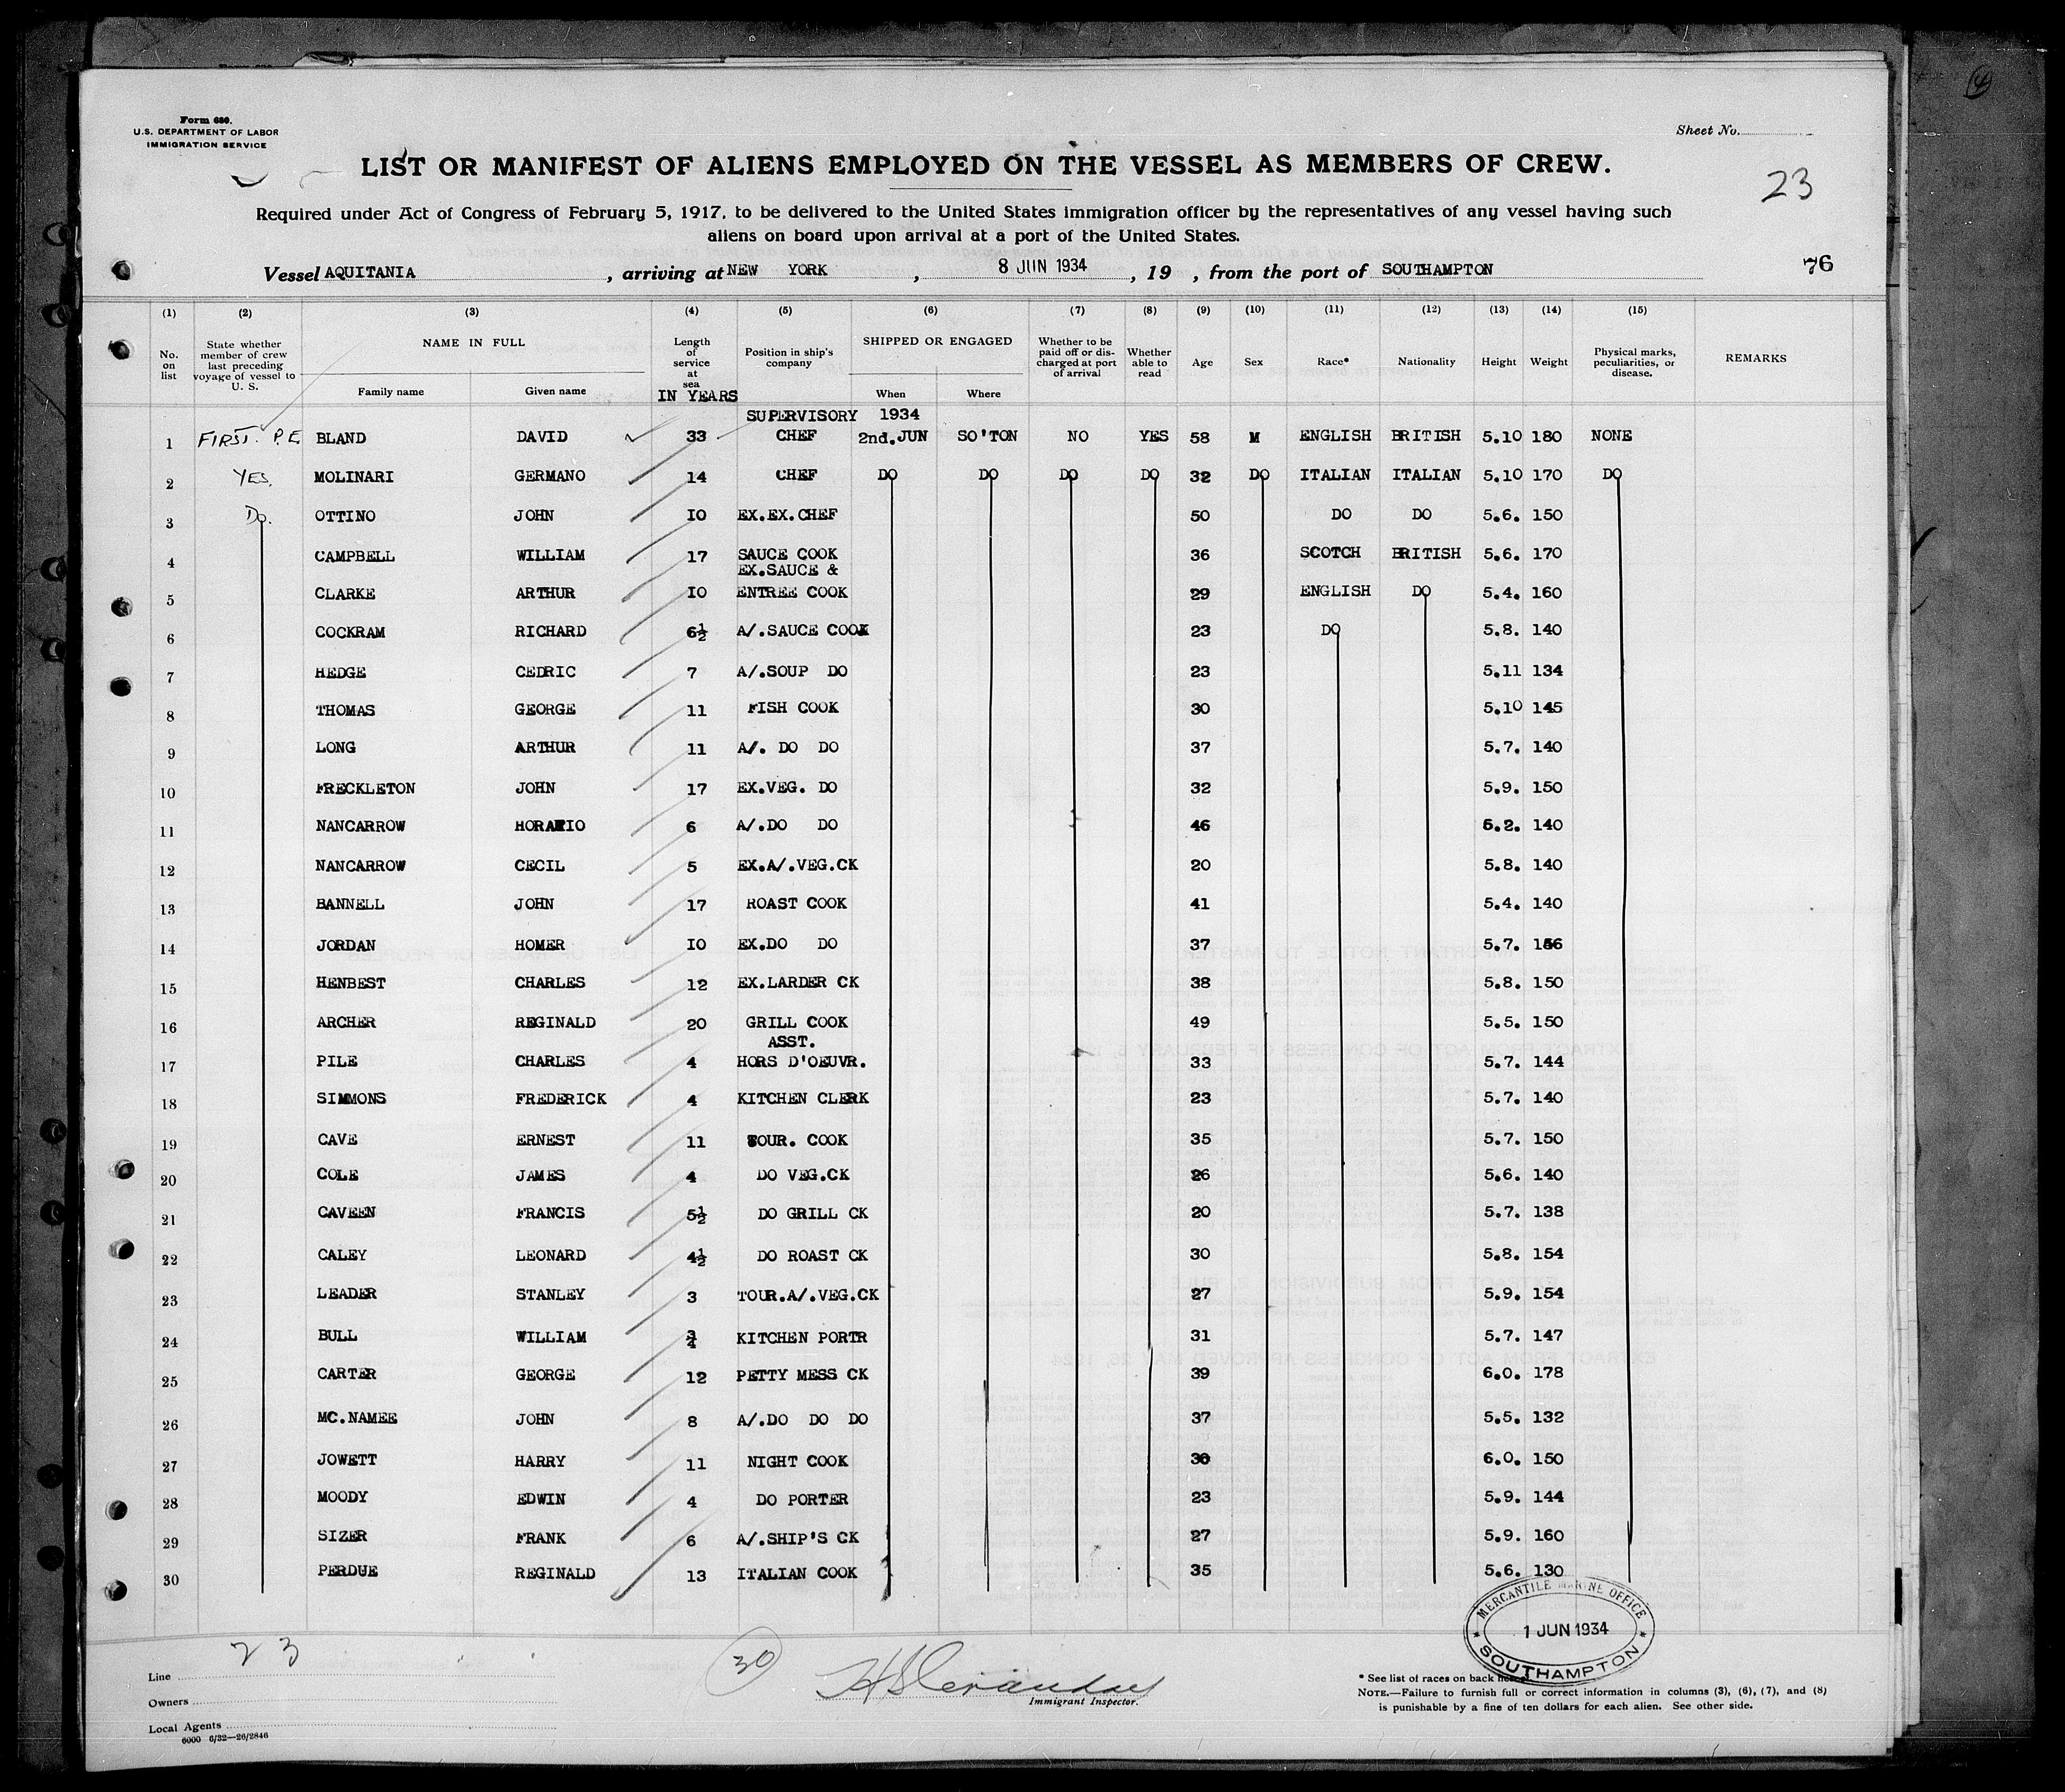 Form 680.
U.S. DEPARTMENT OF LABOR
IMMIGRATION SERVICE
Sheet No.
LIST OR MANIFEST OF ALIENS EMPLOYED ON THE VESSEL AS MEMBERS OF CREW.
23
Required under Act of Congress of February 5, 1917, to be delivered to the United States immigration officer by the representatives of any vessel having such
aliens on board upon arrival at a port of the United States.
Vessel AQUITANIA, arriving at NEW YORK, 8 JUN 1934, 19 , from the port of SOUTHAMPTON 76
(1) (2) (3) (4) (5) (6) (7) (8) (9) (10) (11) (12) (13) (14) (15)
No. on list
State whether member of crew last preceding voyage of vessel to U. S.
NAME IN FULL
Family name Given name
Length of service at sea IN YEARS
Position in ship's company
SHIPPED OR ENGAGED
When Where
Whether to be paid off or discharged at port of arrival
Whether able to read
Age Sex Race* Nationality Height Weight
Physical marks, peculiarities, or disease.
REMARKS
SUPERVISORY 1934
1 FIRST. P.E BLAND DAVID 33 CHEF 2nd.JUN SO'TON NO YES 58 M ENGLISH BRITISH 5.10 180 NONE
2 YES. MOLINARI GERMANO 14 CHEF DO DO DO DO 32 DO ITALIAN ITALIAN 5.10 170 DO
3 Do. OTTINO JOHN IO EX.EX.CHEF 50 DO DO 5.6. 150
4 CAMPBELL WILLIAM 17 SAUCE COOK 36 SCOTCH BRITISH 5.6. 170
EX.SAUCE &
5 CLARKE ARTHUR IO ENTREE COOK 29 ENGLISH DO 5.4. 160
6 COCKRAM RICHARD 6½ A/.SAUCE COOK 23 DO 5.8. 140
7 HEDGE CEDRIC 7 A/.SOUP DO 23 5.11 134
8 THOMAS GEORGE 11 FISH COOK 30 5.10 145
9 LONG ARTHUR 11 A/. DO DO 37 5.7. 140
10 FRECKLETON JOHN 17 EX.VEG. DO 32 5.9. 150
11 NANCARROW 6 A/.DO DO 46 5.2. 140
12 NANCARROW CECIL 5 EX.A/.VEG.CK 20 5.8. 140
13 BANNELL JOHN 17 ROAST COOK 41 5.4. 140
14 JORDAN HOMER IO EX.DO DO 37 5.7.
15 HENBEST CHARLES 12 EX.LARDER CK 38 5.8. 150
16 ARCHER REGINALD 20 GRILL COOK 49 5.5. 150
ASST.
17 PILE CHARLES 4 HORS D'OEUVR. 33 5.7. 144
18 SIMMONS FREDERICK 4 KITCHEN CLERK 23 5.7. 140
19 CAVE ERNEST 11 TOUR. COOK 35 5.7. 150
20 COLE JAMES 4 DO VEG.CK 26 5.6. 140
21 CAVEEN FRANCIS 5½ DO GRILL CK 20 5.7. 138
22 CALEY LEONARD 4½ DO ROAST CK 30 5.8. 154
23 LEADER STANLEY 3 TOUR.A/.VEG.CK 27 5.9. 154
24 BULL WILLIAM ¾ KITCHEN PORTR 31 5.7. 147
25 CARTER GEORGE 12 PETTY MESS CK 39 6.0. 178
26 MC.NAMEE JOHN 8 A/.DO DO DO 37 5.5. 132
27 JOWETT HARRY 11 NIGHT COOK 30 6.0. 150
28 MOODY EDWIN 4 DO PORTER 23 5.9. 144
29 SIZER FRANK 6 A/.SHIP'S CK 27 5.9. 160
30 PERDUE REGINALD 13 ITALIAN COOK 35 5.6. 130
MERCANTILE MARINE OFFICE
1 JUN 1934
SOUTHAMPTON
23
30
Line
Owners
Local Agents
6000 6/32—26/2846
Immigrant Inspector.
* See list of races on back
NOTE.—Failure to furnish full or correct information in columns (3), (6), (7), and (8)
is punishable by a fine of ten dollars for each alien. See other side.